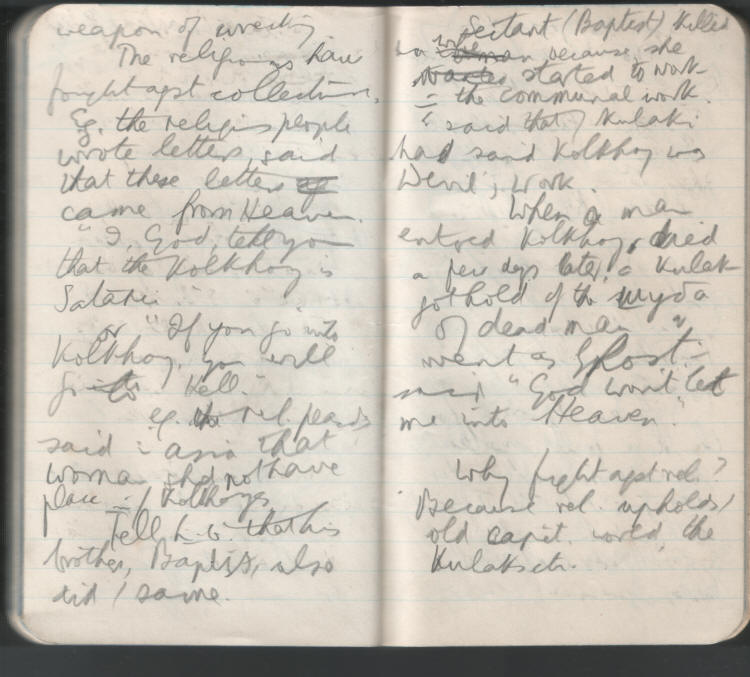 weapon of wrecking.
The religions have
fought agst collectivn.
Eg. the religis people
wrote letters, said
that these letters
came from Heaven.
"I, God, tell you
that the Kolkhoz is
Satanic."
or "If you go into
Kolkhoz, you will
go to Hell."
eg. rel. peas
said in asia that
woman shd not have
place in Kolkhozes
Tell that his
brother, Baptist, also
did / same.
Sectant (Baptist) killed
woman because she
started to work
in the communal work.
said that / Kulaki
had said Kolkhoz was
Devil's work.
When a man
entered Kolkhoz, died
a few days later, a Kulak
got hold of the
of dead man
went as Ghost
said "God won't let
me into Heaven."
Why fight agst rel.?
Because rel. upholds /
old capit. world, the
Kulaks etc.